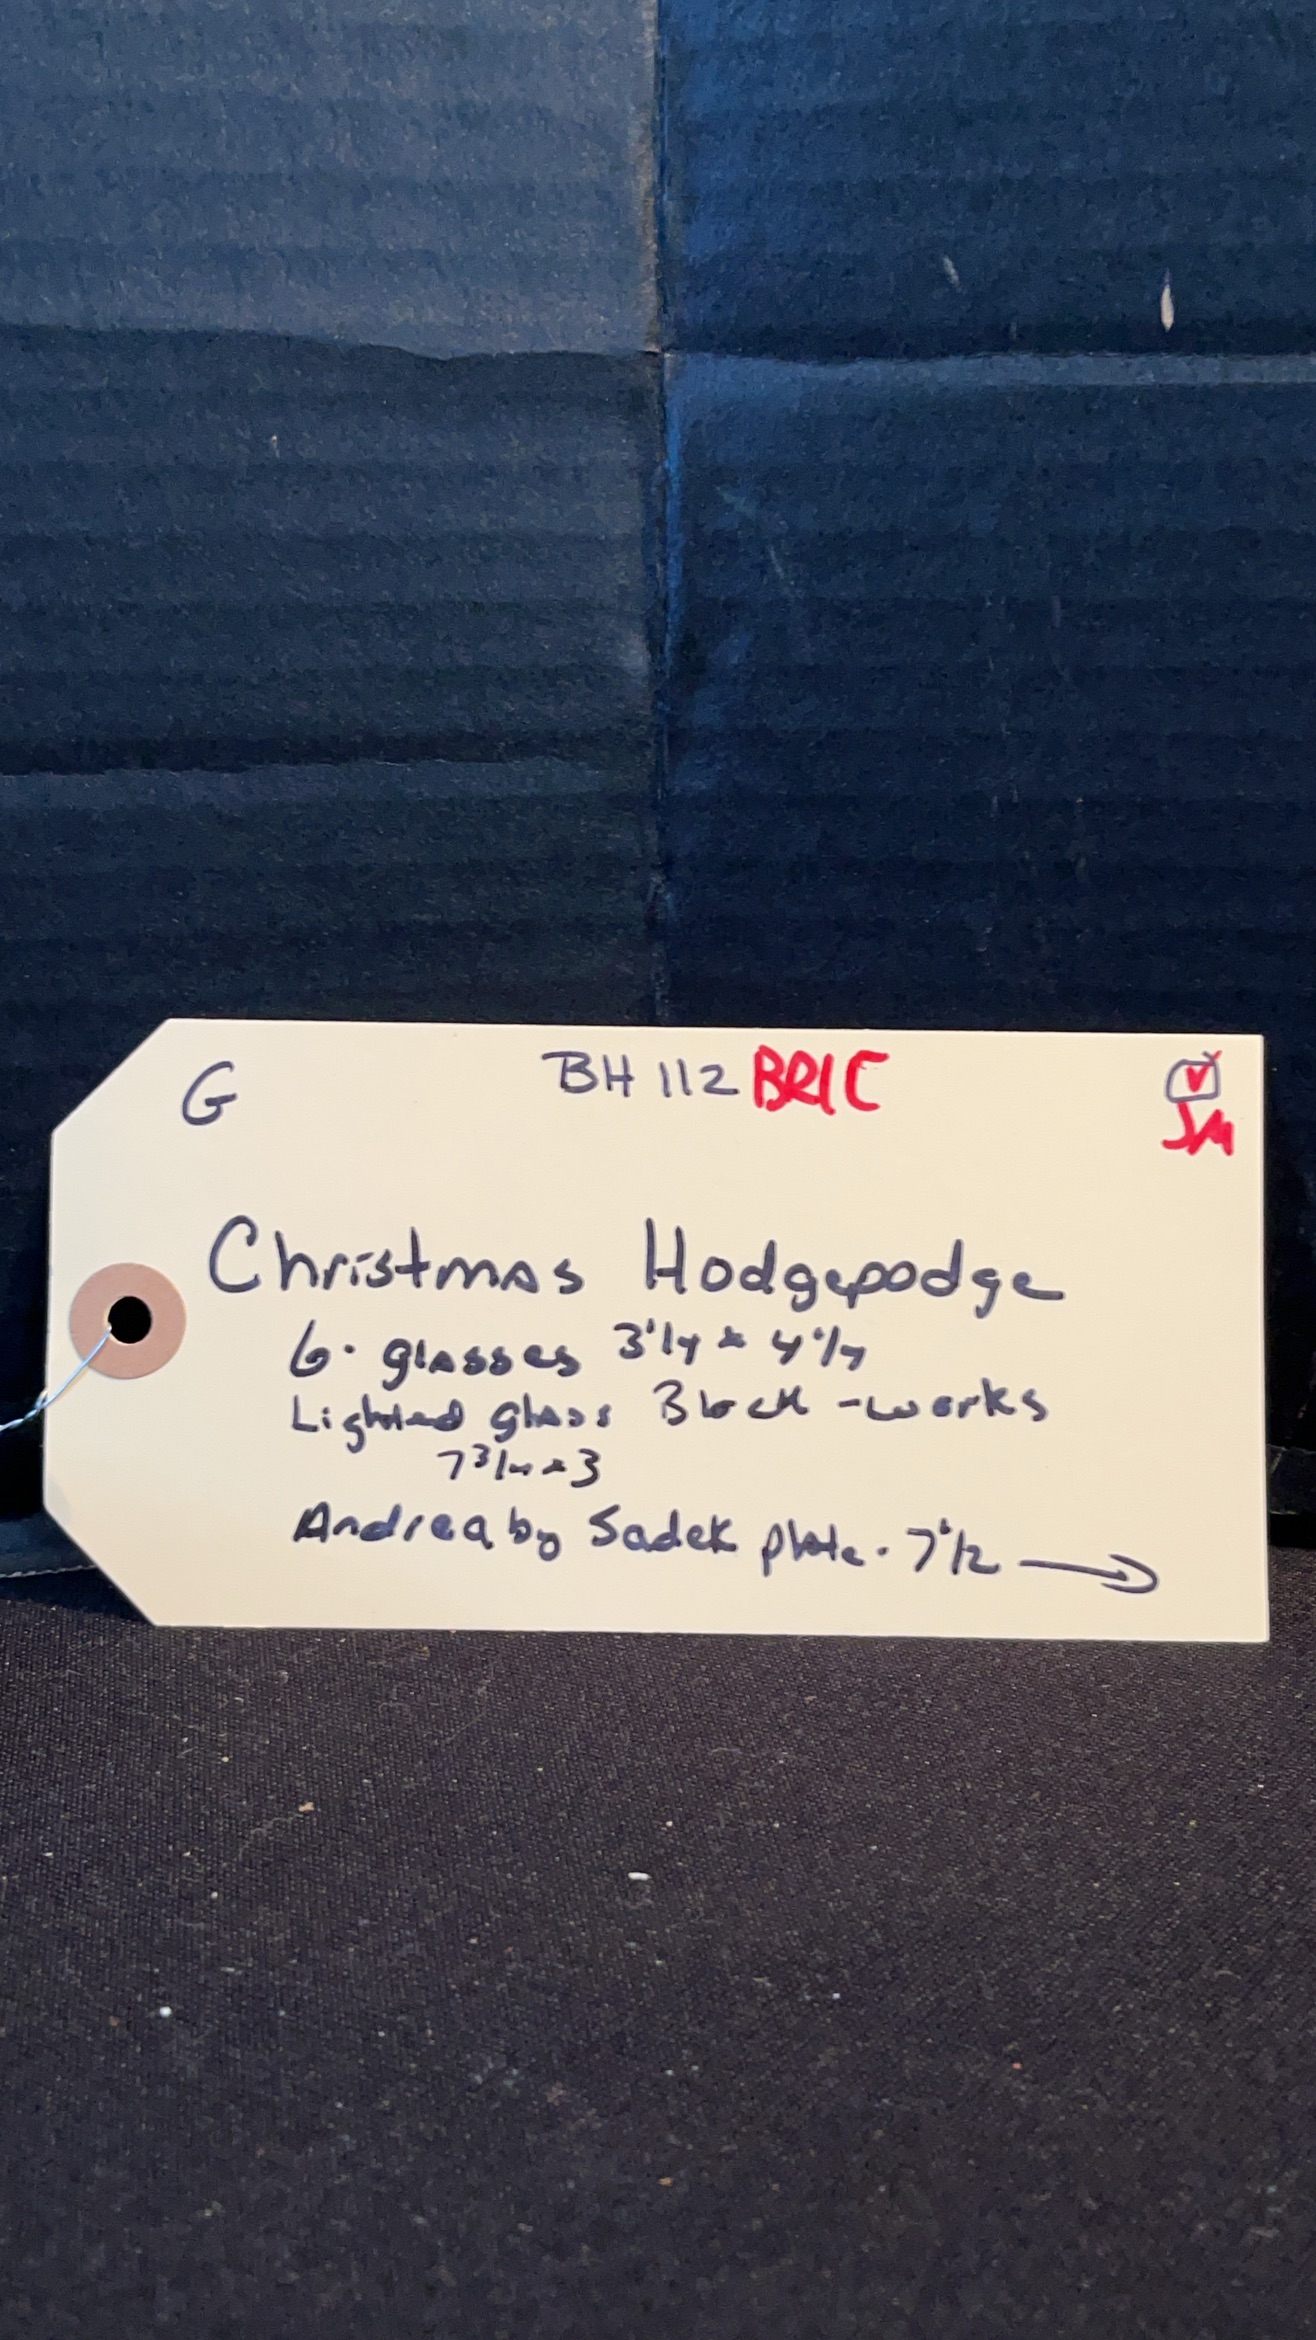 G BH 112 BRIC
SM
Christmas Hodgepodge
6. glasses 3 1/4 x 4 1/4
Lighted glass Block - works
7 3/4 x 3
Andrea by Sadek plate. 7 1/2 →